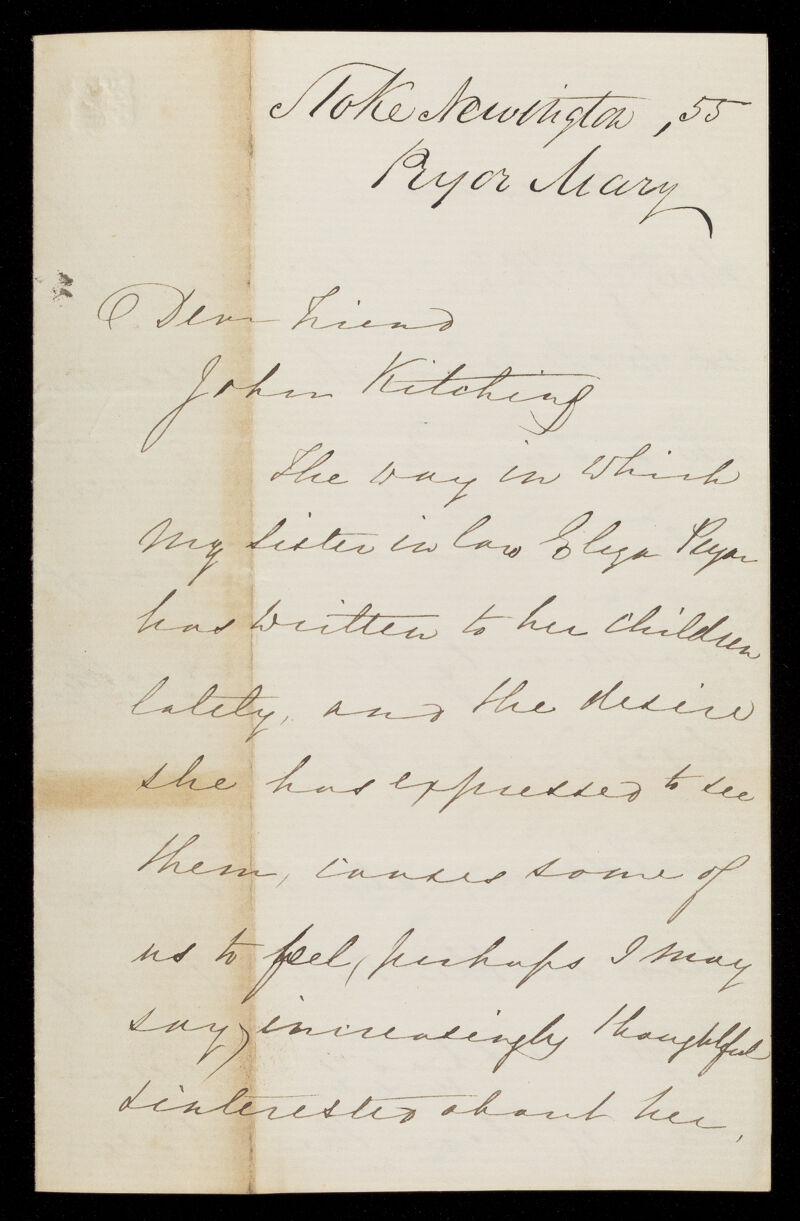 Stoke Newington, 55
Pryor Mary
Dear Friend
John Kitching
The way in which
my sister in law Eliza Pryor
has written to her children
lately, and the desire
she has expressed to see
them, causes some of
us to feel, (perhaps I may
say) increasingly thoughtful
& interested about her,